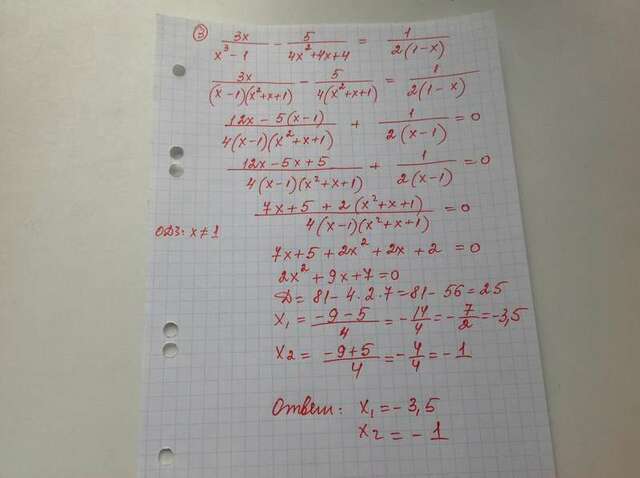 ③ 3x/(x³-1) - 5/(4x²+4x+4) = 1/(2(1-x))
3x/((x-1)(x²+x+1)) - 5/(4(x²+x+1)) = 1/(2(1-x))
(12x-5(x-1))/(4(x-1)(x²+x+1)) + 1/(2(x-1)) = 0
(12x-5x+5)/(4(x-1)(x²+x+1)) + 1/(2(x-1)) = 0
(7x+5+2(x²+x+1))/(4(x-1)(x²+x+1)) = 0
ОДЗ: x≠1
7x+5+2x²+2x+2 = 0
2x²+9x+7=0
Д= 81-4·2·7=81-56=25
x₁= (-9-5)/4 = -14/4 = -7/2 = -3,5
x₂= (-9+5)/4 = -4/4 = -1
Ответ: x₁=-3,5
x₂=-1